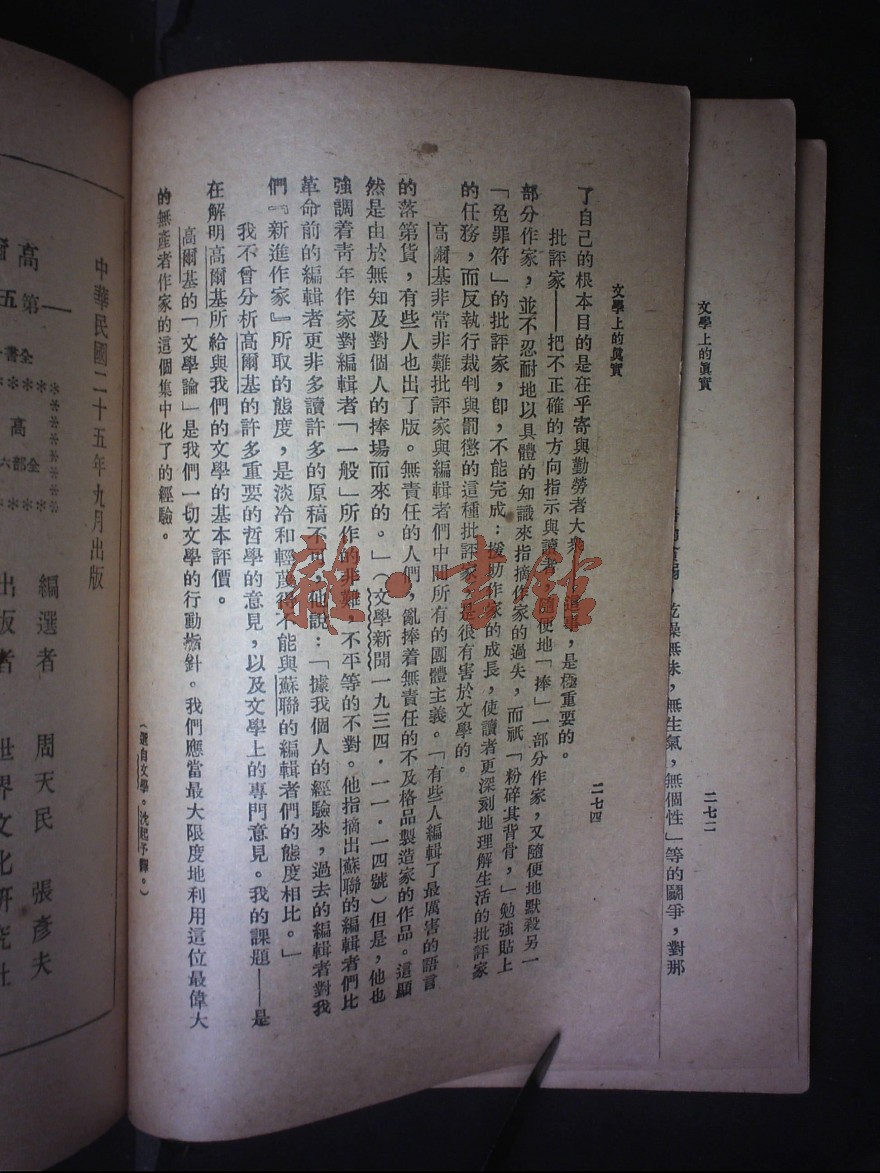 文學上的眞實
二七二
乾燥無味，無生氣，無個性」等的鬬爭，對那
文學上的眞實
二七四
了自己的根本目的是在乎寄與勤勞者大衆，這事，是極重要的。
批評家——把不正確的方向指示與讀者，隨便地「捧」一部分作家，又隨便地默殺另一
部分作家，並不忍耐地以具體的知識來指摘作家的過失，而祇「粉碎其背骨，」勉強貼上
「免罪符」的批評家，卽，不能完成；援助作家的成長，使讀者更深刻地理解生活的批評家
的任務，而反執行裁判與罰懲的這種批評家，是很有害於文學的。
高爾基非常非難批評家與編輯者們中間所有的團體主義。「有些人編輯了最厲害的語言
的落第貨，有些人也出了版。無責任的人們，亂捧着無責任的不及格品製造家的作品。這顯
然是由於無知及對個人的捧場而來的。」（文學新聞一九三四．一一．一四號）但是，他也
強調着靑年作家對編輯者「一般」所作的非難，不平等的不對。他指摘出蘇聯的編輯者們比
革命前的編輯者更非多讀許多的原稿不可，他說：「據我個人的經驗來，過去的編輯者對我
們『新進作家』所取的態度，是淡冷和輕蔑得不能與蘇聯的編輯者們的態度相比。」
我不曾分析高爾基的許多重要的哲學的意見，以及文學上的專門意見。我的課題——是
在解明高爾基所給與我們的文學的基本評價。
高爾基的「文學論」是我們一切文學的行動指針。我們應當最大限度地利用這位最偉大
的無產者作家的這個集中化了的經驗。
（選自文學。沈起予譯。）
雜·書館
中華民國二十五年九月出版
編選者 周天民 張彥夫
出版者 世界文化研究社
全書
高
全部六
高爾
第五